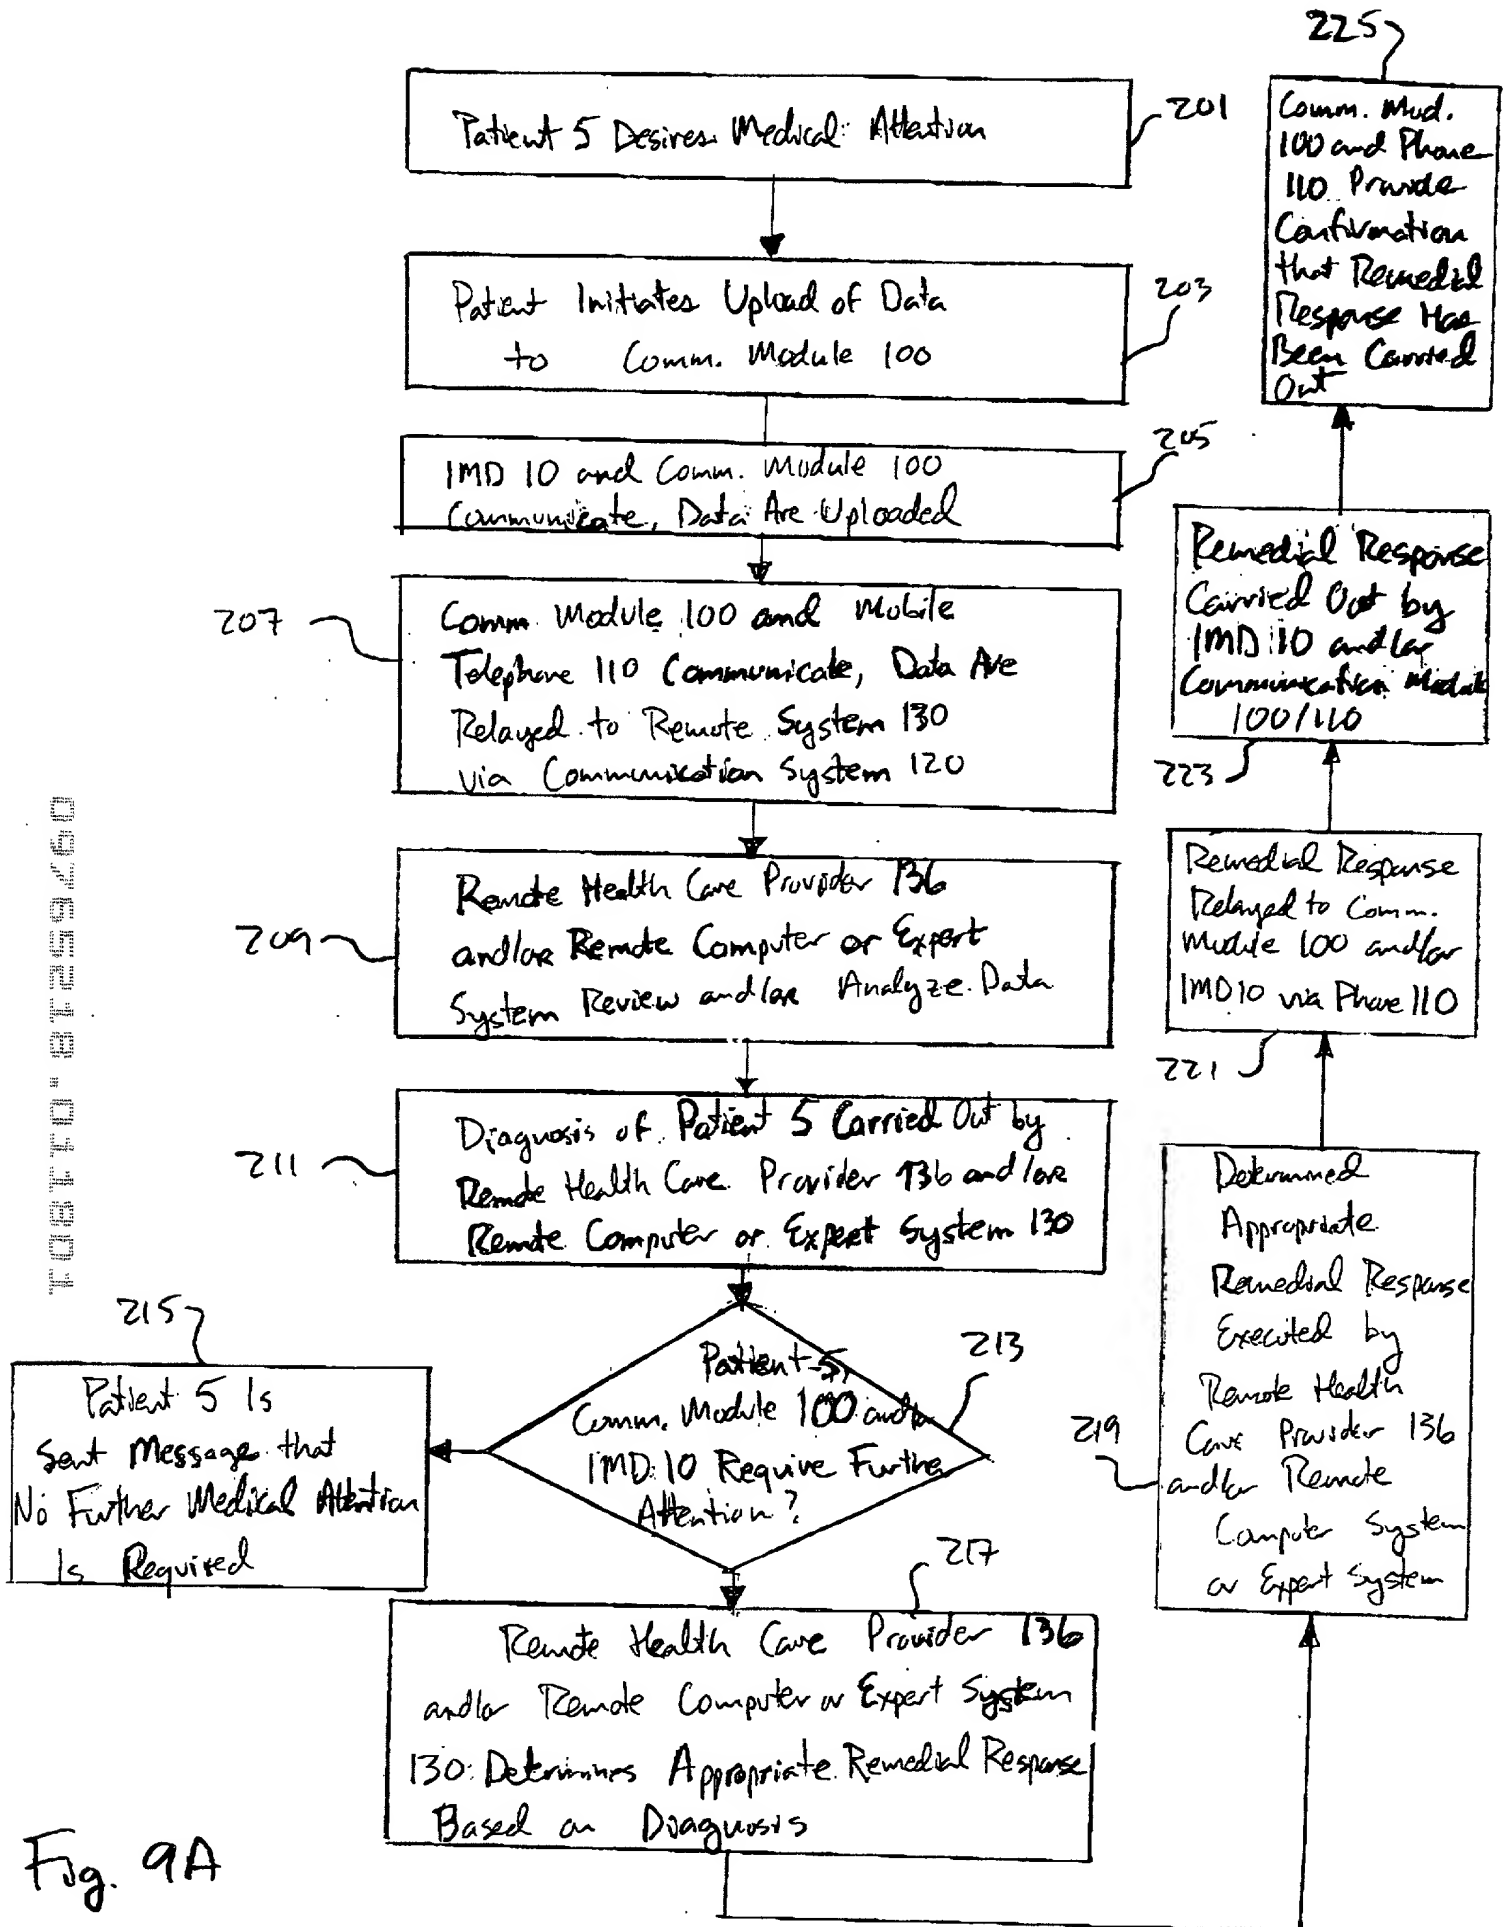 201
Patient 5 Desires Medical Attention
203
Patient Initiates Upload of Data
to Comm. Module 100
205
IMD 10 and Comm. Module 100
Communicate, Data Are Uploaded
207
Comm. Module 100 and Mobile
Telephone 110 Communicate, Data Are
Relayed to Remote System 130
via Communication System 120
209
Remote Health Care Provider 136
and/or Remote Computer or Expert
System Review and/or Analyze Data
211
Diagnosis of Patient 5 Carried Out by
Remote Health Care Provider 136 and/or
Remote Computer or Expert System 130
213
Patient 5,
Comm. Module 100 and/or
IMD 10 Require Further
Attention?
215
Patient 5 Is
Sent Message that
No Further Medical Attention
Is Required
217
Remote Health Care Provider 136
and/or Remote Computer or Expert System
130 Determines Appropriate Remedial Response
Based on Diagnosis
219
Determined
Appropriate
Remedial Response
Executed by
Remote Health
Care Provider 136
and/or Remote
Computer System
or Expert System
221
Remedial Response
Relayed to Comm.
Module 100 and/or
IMD 10 via Phone 110
223
Remedial Response
Carried Out by
IMD 10 and/or
Communication Module
100/110
225
Comm. Mod.
100 and Phone
110 Provide
Confirmation
that Remedial
Response Has
Been Carried
Out
09765218.011801
Fig. 9A